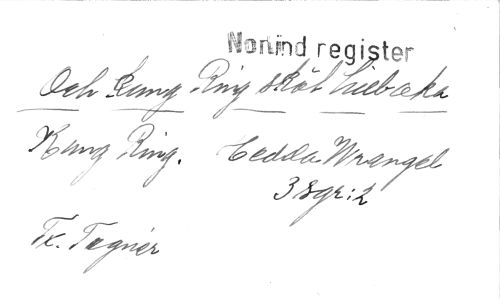 Nonind register
Och Kung Ring sköt tillbaka
Kung Ring. Hedda Wrangel
3 sgr:2
Tx. Tegnér